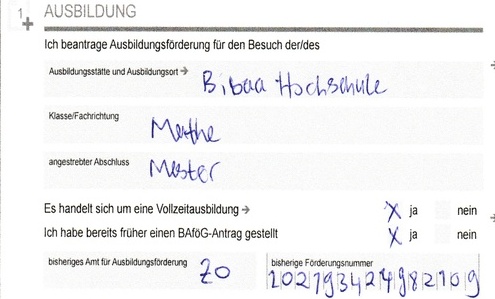 1 AUSBILDUNG
Ich beantrage Ausbildungsförderung für den Besuch der/des
Ausbildungsstätte und Ausbildungsort → Bibaa Hochschule
Klasse/Fachrichtung Mathe
angestrebter Abschluss Master
Es handelt sich um eine Vollzeitausbildung → X ja nein
Ich habe bereits früher einen BAföG-Antrag gestellt X ja nein
bisheriges Amt für Ausbildungsförderung bisherige Förderungsnummer